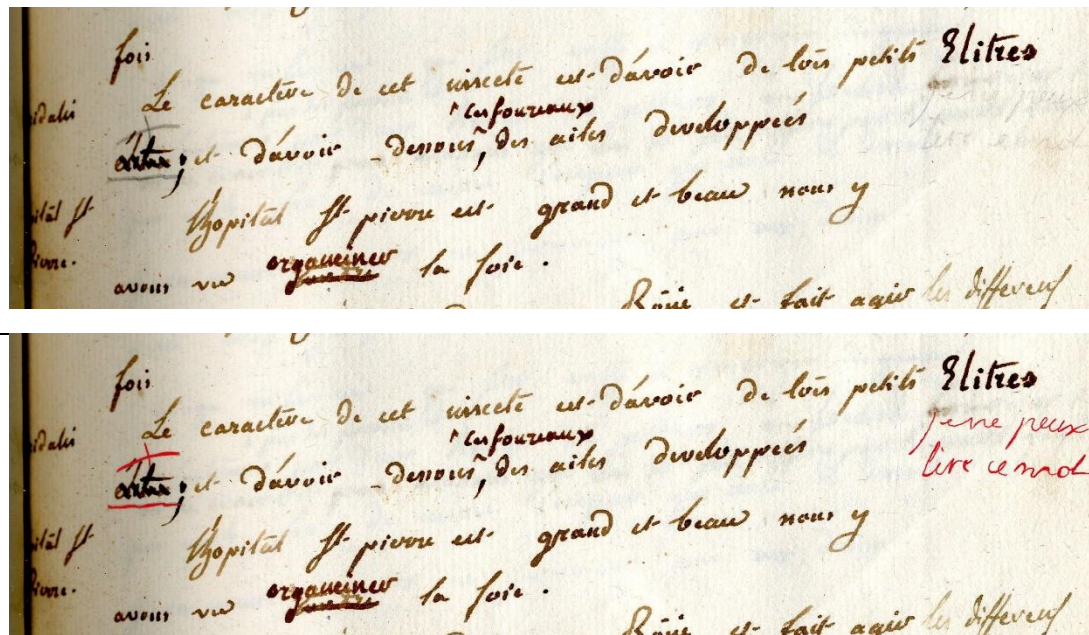 fois
Le caractère de cet insecte est d'avoir de très petits Elitres
et d'avoir dessous, des ailes developpeés
les foureaux
L'hopital St pierre est grand et beau nous y
avons vu organciner la soie.
et fait agir les differens
fois
Le caractère de cet insecte est d'avoir de très petits Elitres
je ne peux
lire ce mot
et d'avoir dessous, des ailes developpeés
les foureaux
L'hopital St pierre est grand et beau nous y
avons vu organciner la soie.
et fait agir les differens